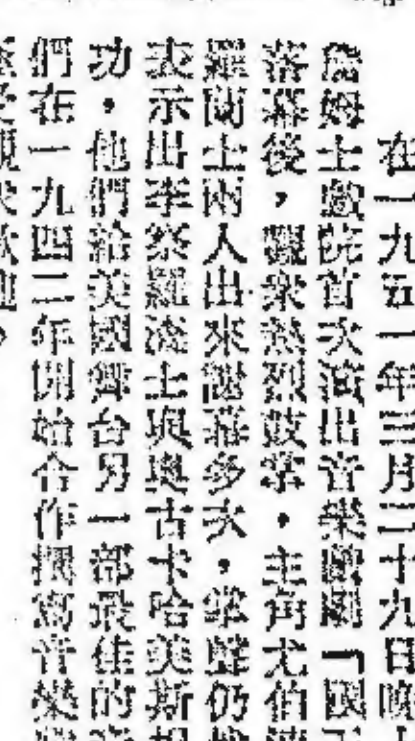 在一九五一年三月二十九日晚
詹姆士戲院首次演出音樂戲劇「國王
落幕後，觀衆熱烈鼓掌。主角尤伯
羅蘭士兩人出來謝幕多次。掌聲仍
表示出李察羅渣士與奧古卡哈美斯
功。他們給美國舞台另一部最佳的
們在一九四二年開始合作撰寫音樂